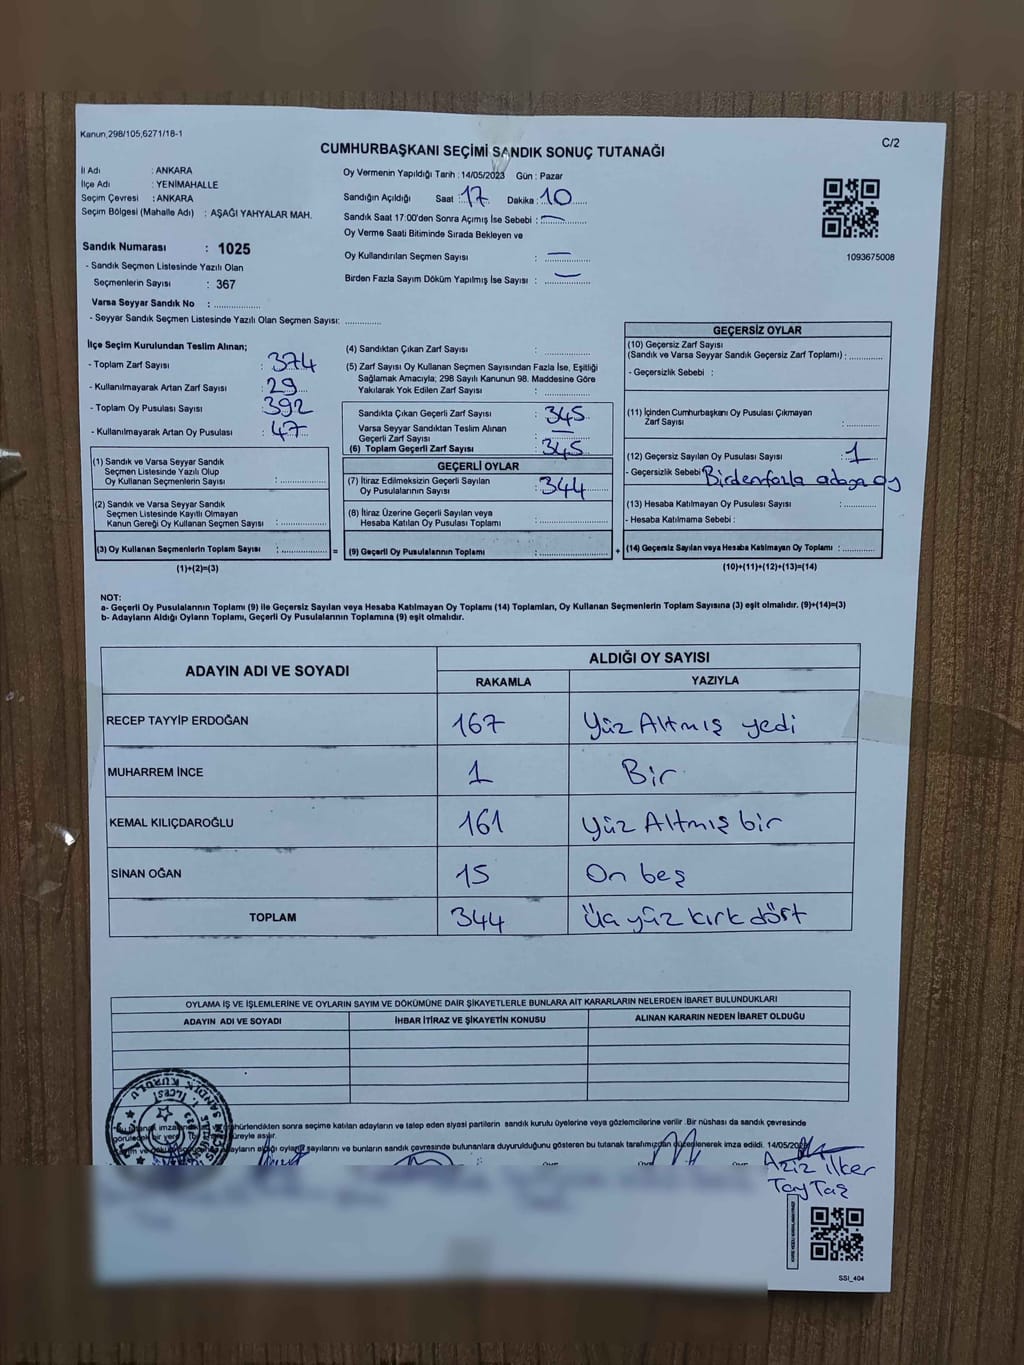 Kanun,298/105,6271/18-1
C/2
CUMHURBAŞKANI SEÇİMİ SANDIK SONUÇ TUTANAĞI
İl Adı : ANKARA
İlçe Adı : YENİMAHALLE
Seçim Çevresi : ANKARA
Seçim Bölgesi (Mahalle Adı) : AŞAĞI YAHYALAR MAH.
Sandık Numarası : 1025
- Sandık Seçmen Listesinde Yazılı Olan
Seçmenlerin Sayısı : 367
Varsa Seyyar Sandık No : ..............
- Seyyar Sandık Seçmen Listesinde Yazılı Olan Seçmen Sayısı: ............
Oy Vermenin Yapıldığı Tarih : 14/05/2023 Gün : Pazar
Sandığın Açıldığı Saat : 17 Dakika : 10
Sandık Saat 17:00'den Sonra Açımış İse Sebebi : —
Oy Verme Saati Bitiminde Sırada Bekleyen ve
Oy Kullandırılan Seçmen Sayısı : —
Birden Fazla Sayım Döküm Yapılmış İse Sayısı : —
1093675008
İlçe Seçim Kurulundan Teslim Alınan;
- Toplam Zarf Sayısı : 374
- Kullanılmayarak Artan Zarf Sayısı : 29
- Toplam Oy Pusulası Sayısı : 392
- Kullanılmayarak Artan Oy Pusulası : 47
(1) Sandık ve Varsa Seyyar Sandık
Seçmen Listesinde Yazılı Olup
Oy Kullanan Seçmenlerin Sayısı : ............
(2) Sandık ve Varsa Seyyar Sandık
Seçmen Listesinde Kayıtlı Olmayan
Kanun Gereği Oy Kullanan Seçmen Sayısı : ............
(3) Oy Kullanan Seçmenlerin Toplam Sayısı : ............
(1)+(2)=(3)
(4) Sandıktan Çıkan Zarf Sayısı : ............
(5) Zarf Sayısı Oy Kullanan Seçmen Sayısından Fazla İse, Eşitliği
Sağlamak Amacıyla; 298 Sayılı Kanunun 98. Maddesine Göre
Yakılarak Yok Edilen Zarf Sayısı : ............
Sandıkta Çıkan Geçerli Zarf Sayısı : 345
Varsa Seyyar Sandıktan Teslim Alınan
Geçerli Zarf Sayısı : —
(6) Toplam Geçerli Zarf Sayısı : 345
GEÇERLİ OYLAR
(7) İtiraz Edilmeksizin Geçerli Sayılan
Oy Pusulalarının Sayısı : 344
(8) İtiraz Üzerine Geçerli Sayılan veya
Hesaba Katılan Oy Pusulası Toplamı : ............
= (9) Geçerli Oy Pusulalarının Toplamı : ............
GEÇERSİZ OYLAR
(10) Geçersiz Zarf Sayısı
(Sandık ve Varsa Seyyar Sandık Geçersiz Zarf Toplamı) : ............
- Geçersizlik Sebebi :
(11) İçinden Cumhurbaşkanı Oy Pusulası Çıkmayan
Zarf Sayısı : ............
(12) Geçersiz Sayılan Oy Pusulası Sayısı : 1
- Geçersizlik Sebebi Birden fazla adaya oy
(13) Hesaba Katılmayan Oy Pusulası Sayısı : ............
- Hesaba Katılmama Sebebi :
+ (14) Geçersiz Sayılan veya Hesaba Katılmayan Oy Toplamı : ............
(10)+(11)+(12)+(13)=(14)
NOT:
a- Geçerli Oy Pusulalarının Toplamı (9) ile Geçersiz Sayılan veya Hesaba Katılmayan Oy Toplamı (14) Toplamları, Oy Kullanan Seçmenlerin Toplam Sayısına (3) eşit olmalıdır. (9)+(14)=(3)
b- Adayların Aldığı Oyların Toplamı, Geçerli Oy Pusulalarının Toplamına (9) eşit olmalıdır.
ADAYIN ADI VE SOYADI ALDIĞI OY SAYISI
RAKAMLA YAZIYLA
RECEP TAYYİP ERDOĞAN 167 Yüz Altmış yedi
MUHARREM İNCE 1 Bir
KEMAL KILIÇDAROĞLU 161 Yüz Altmış bir
SİNAN OĞAN 15 On beş
TOPLAM 344 Üç yüz kırk dört
OYLAMA İŞ VE İŞLEMLERİNE VE OYLARIN SAYIM VE DÖKÜMÜNE DAİR ŞİKAYETLERLE BUNLARA AİT KARARLARIN NELERDEN İBARET BULUNDUKLARI
ADAYIN ADI VE SOYADI İHBAR İTİRAZ VE ŞİKAYETİN KONUSU ALINAN KARARIN NEDEN İBARET OLDUĞU
sonra seçime katılan adayların ve talep eden siyasi partilerin sandık kurulu üyelerine veya gözlemcilerine verilir. Bir nüshası da sandık çevresinde
aldığı oy sayılarını ve bunların sandık çevresinde bulunanlara duyurulduğunu gösteren bu tutanak tarafımızdan düzenlenerek imza edildi. 14/05/
Aziz İlker
Taytaş
SSI_404